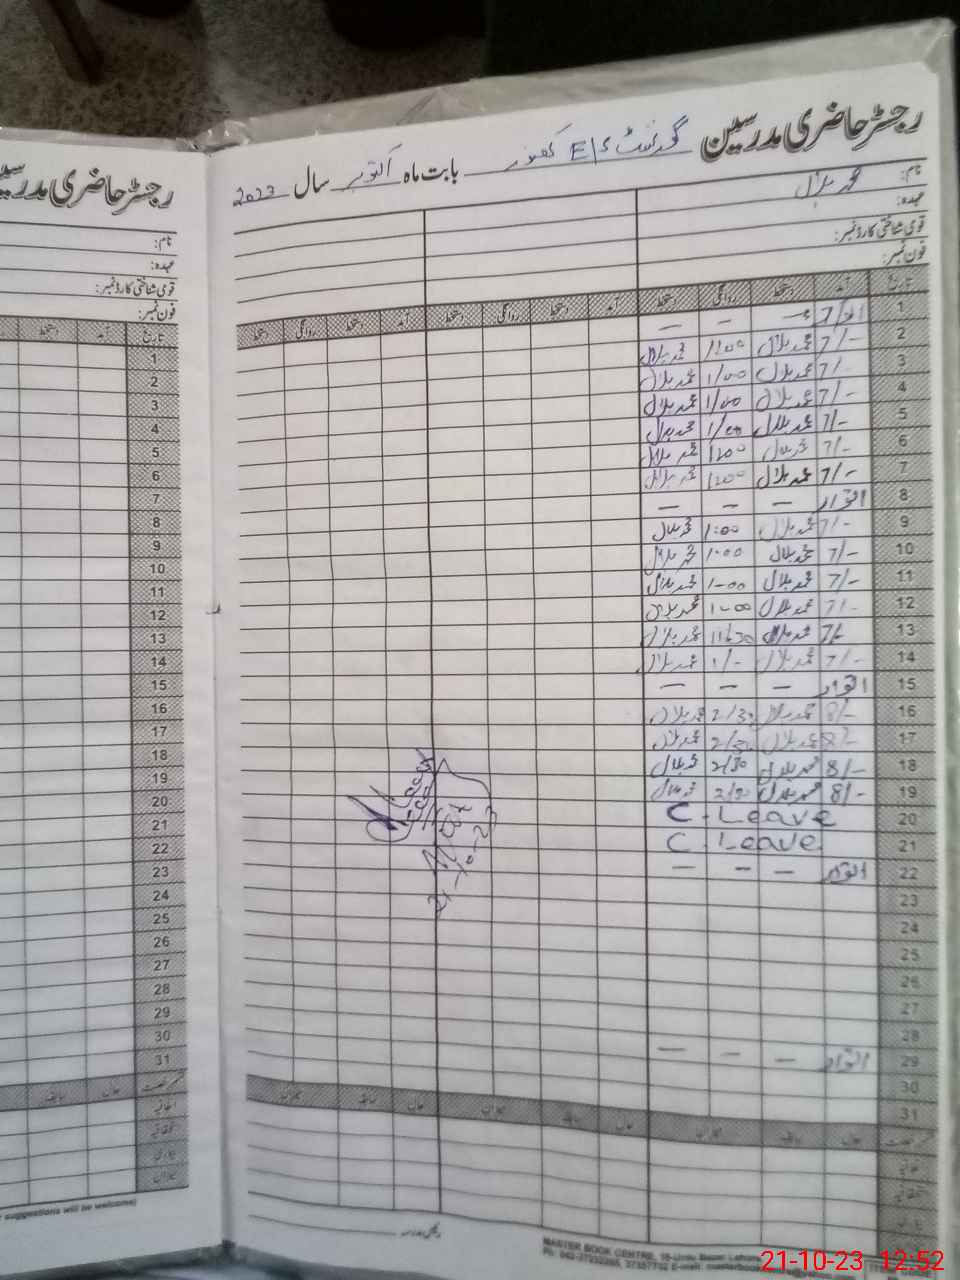 رجسٹر حاضری مدرسین گورنمنٹ E/S بابت ماہ اکتوبر سال 2023
نام: محمد بلال
عہدہ:
قومی شناختی کارڈ نمبر:
فون نمبر:
تاریخ آمد دستخط روانگی دستخط آمد دستخط روانگی دستخط آمد دستخط روانگی دستخط
1 اتوار — — —
2 7/- محمد بلال 1:00 محمد بلال
3 7/- محمد بلال 1/00 محمد بلال
4 7/- محمد بلال 1/00 محمد بلال
5 7/- محمد بلال 1/00 محمد بلال
6 7/- محمد بلال 1200 محمد بلال
7 7/- محمد بلال 1200 محمد بلال
8 اتوار — — —
9 7/- محمد بلال 1:00 محمد بلال
10 7/- محمد بلال 1:00 محمد بلال
11 7/- محمد بلال 1-00 محمد بلال
12 7/- محمد بلال 1-00 محمد بلال
13 7/- محمد بلال 11:30 محمد بلال
14 7/- محمد بلال 1/- محمد بلال
15 اتوار — — —
16 8/- محمد بلال 2/30 محمد بلال
17 8/- محمد بلال 2/30 محمد بلال
18 8/- محمد بلال 2/30 محمد بلال
19 8/- محمد بلال 2/30 محمد بلال
20 C. Leave
21 C. Leave
22 اتوار — — —
23
24
25
26
27
28
29 اتوار — — —
30
31
21-10-23
حال سابقہ میزان حال سابقہ میزان حال سابقہ میزان
اتفاقیہ
میزان
MASTER BOOK CENTRE, 16-Urdu Bazar Lahore
رجسٹر حاضری مدرسین
نام:
عہدہ:
قومی شناختی کارڈ نمبر:
فون نمبر:
تاریخ آمد دستخط
1
2
3
4
5
6
7
8
9
10
11
12
13
14
15
16
17
18
19
20
21
22
23
24
25
26
27
28
29
30
31
حال سابقہ
اتفاقیہ
میزان
suggestions will be welcome)
21-10-23 12:52